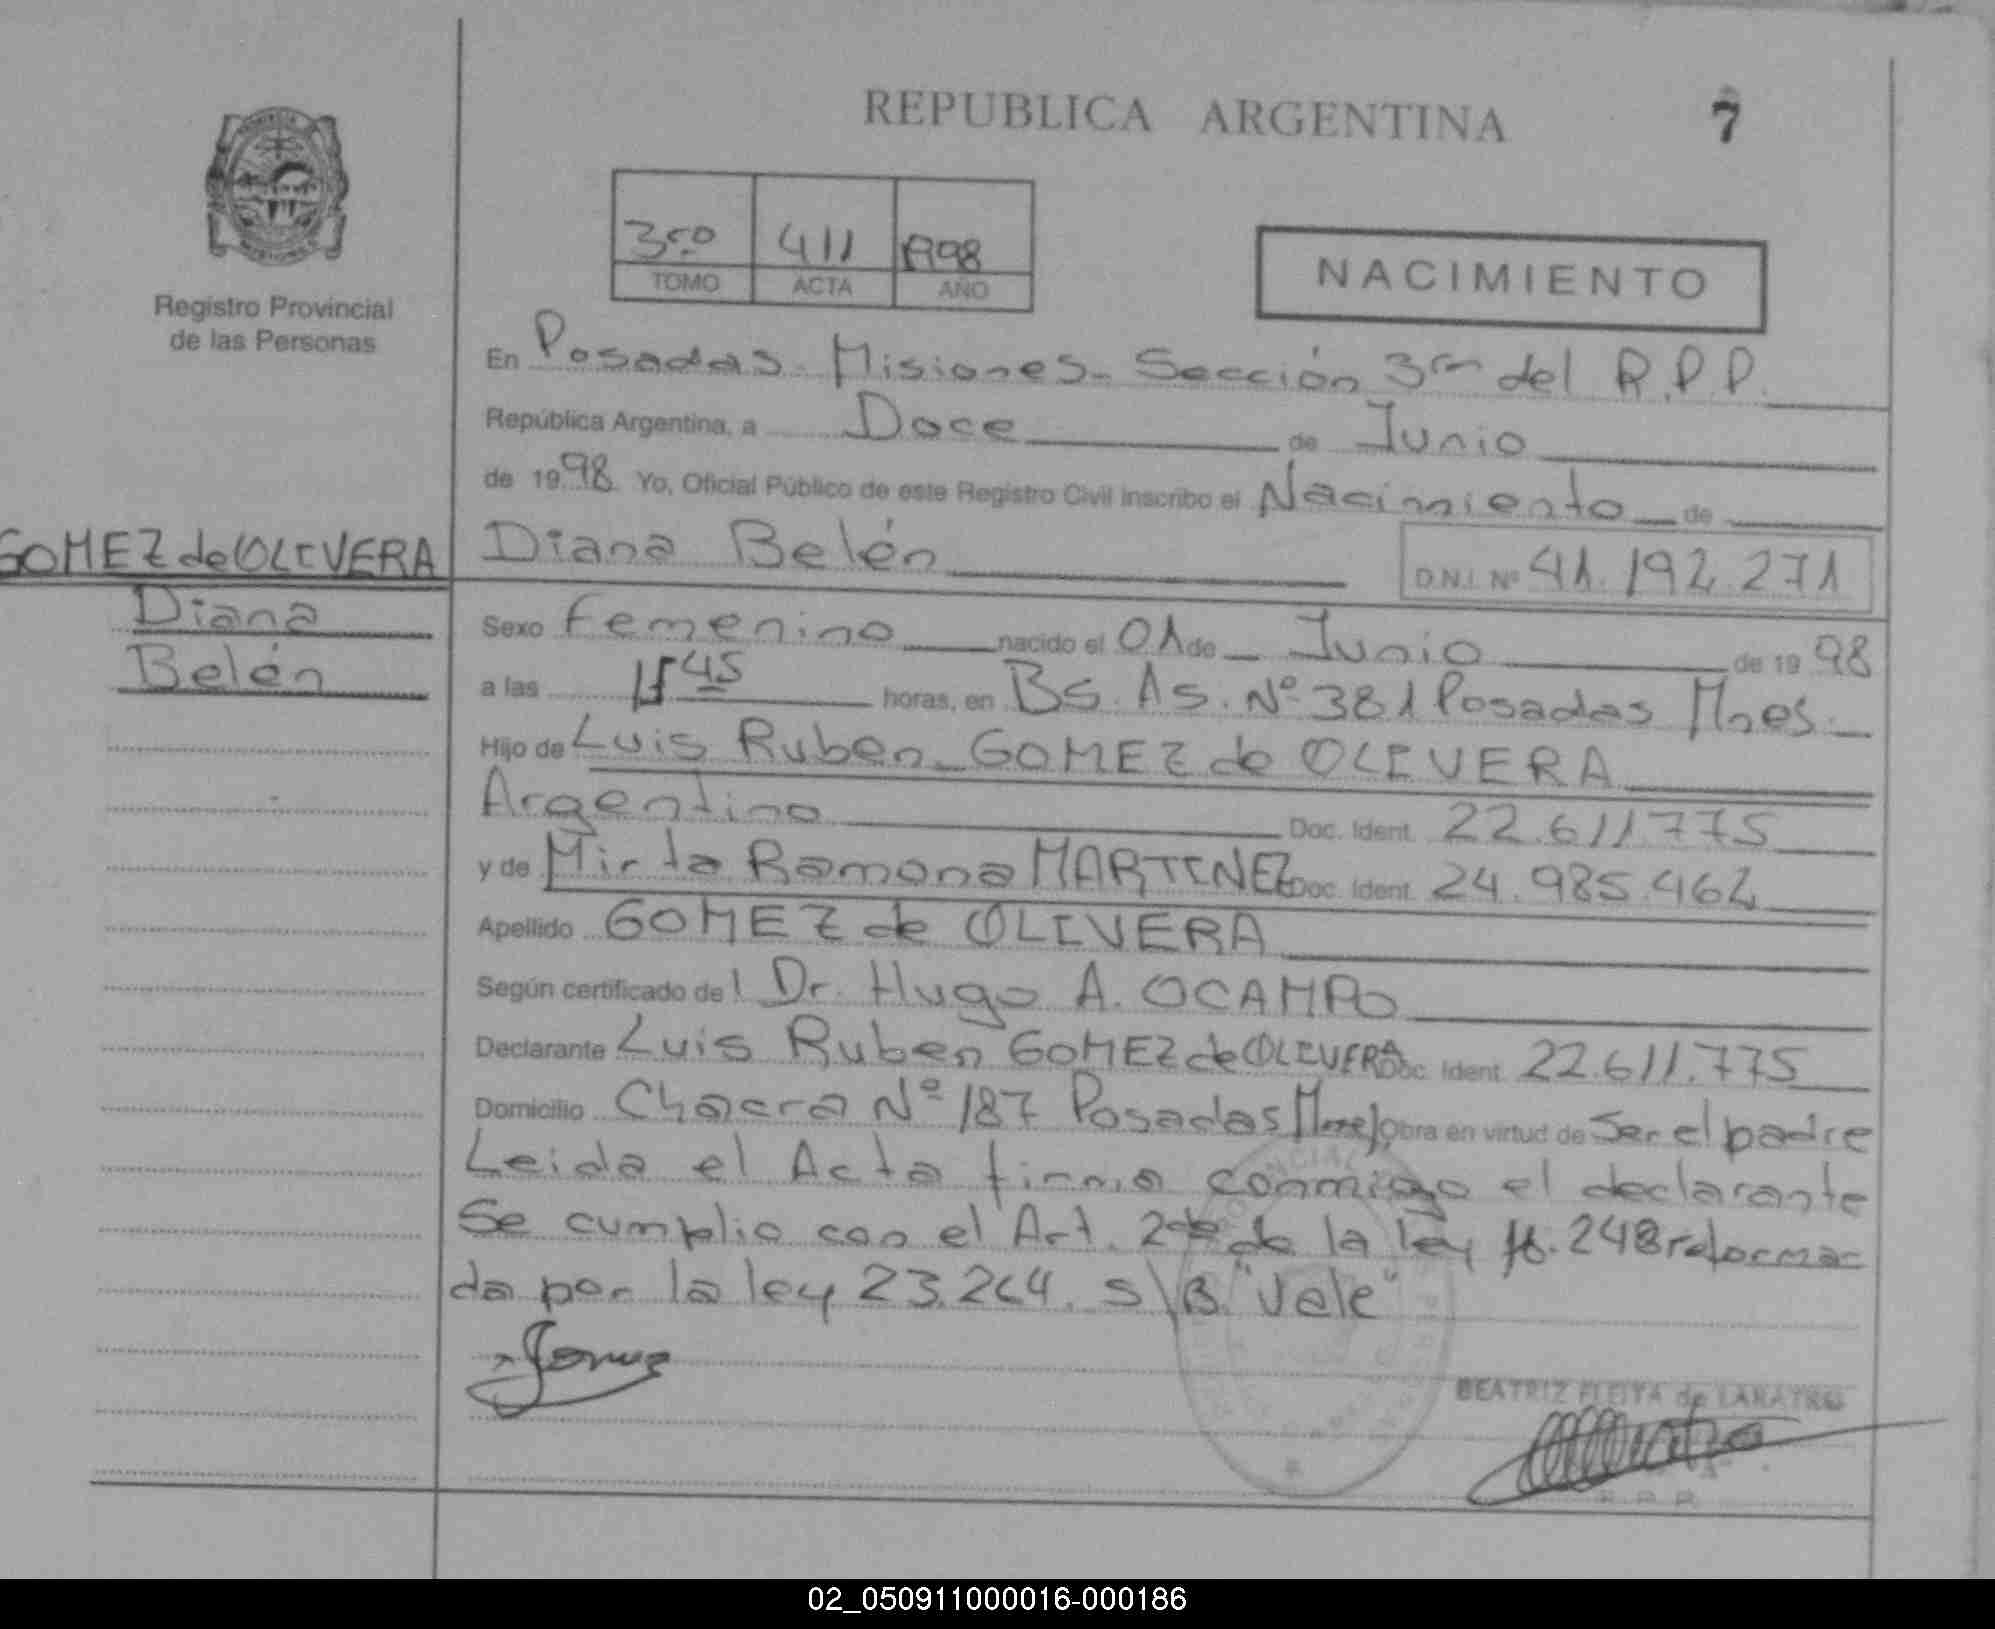 REPUBLICA ARGENTINA
7
Registro Provincial
de las Personas
3ro 411 1998
TOMO ACTA AÑO
NACIMIENTO
En Posadas - Misiones - Sección 3ra del R.P.P.
República Argentina, a Doce de Junio
de 1998 Yo, Oficial Público de este Registro Civil inscribo el Nacimiento de
GOMEZ de OLIVERA
Diana
Belén
Diana Belén D.N.I. Nº 41.192.271
Sexo Femenino nacido el 01 de Junio de 1998
a las 15 45 horas, en Bs. As. Nº 381 Posadas Mnes.
Hijo de Luis Ruben GOMEZ de OLIVERA
Argentino Doc. Ident. 22.611.775
y de Mirta Ramona MARTINEZ Doc. Ident. 24.985.462
Apellido GOMEZ de OLIVERA
Según certificado del Dr. Hugo A. OCAMPO
Declarante Luis Ruben GOMEZ de OLIVERA Doc. Ident. 22.611.775
Domicilio Chacra Nº 187 Posadas Mnes Obra en virtud de Ser el padre
Leida el Acta firma conmigo el declarante
Se cumplio con el Art. 2do de la ley 18.248 reforma-
da por la ley 23.264. s/B. "Vale"
BEATRIZ FLEITA de
R. P. P.
02_050911000016-000186